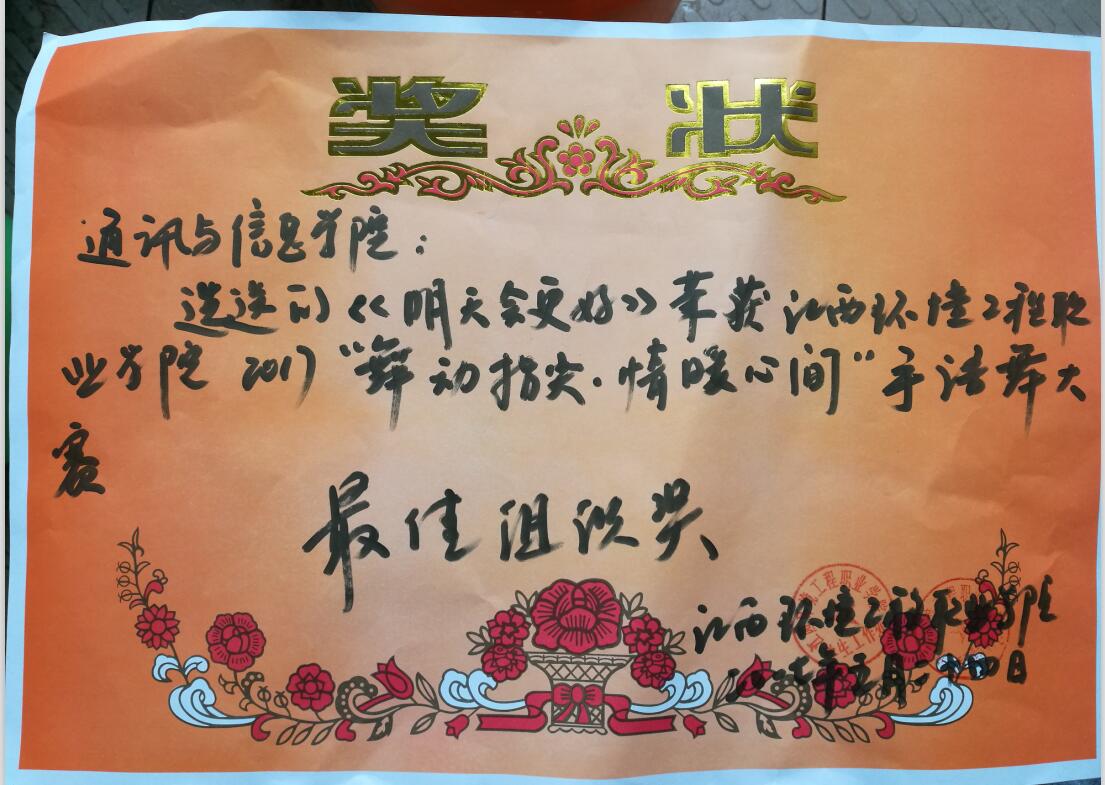 奖状
通讯与信息学院：
选送的《明天会更好》荣获江西环境工程职
业学院2017“舞动指尖·情暖心间”手语舞大
赛
最佳组织奖
江西环境工程职业学院
二〇一七年五月二十四日